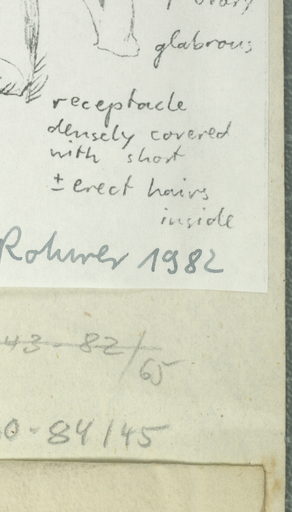 ovary
glabrous
receptacle
densely covered
with short
± erect hairs
inside
Rohwer 1982
43-82/
65
0-84/45